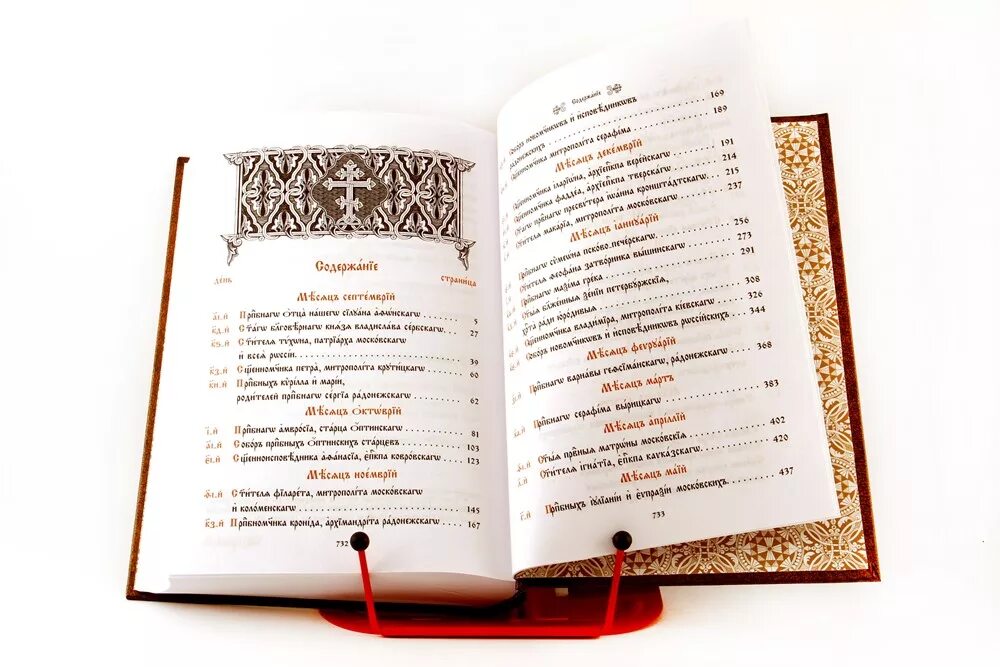 Содержа́нїе
де́нь страни́ца
Мѣ́сяцъ септе́мврїй
а҃і.й Прпⷣбнагѡ ѻ҆тца̀ на́шегѡ сїлꙋа́на а҆ѳѡ́нскагѡ 5
к҃д.й Ст҃а́гѡ бл҃гове́рнагѡ кнѧ́зѧ владисла́ва се́рбскагѡ 27
к҃ѕ.й Ст҃и́телѧ тѵ́хѡна, патрїа́рха моско́вскагѡ
и҆ всеѧ̀ рѡссі́и 39
к҃з.й Сщ҃енномч҃ника петра̀, митрополі́та крꙋти́цкагѡ 60
к҃и.й Прпⷣбныхъ кѷрі́лла и҆ марі́и,
роди́телей прпⷣбнагѡ се́ргїа ра́донежскагѡ 62
Мѣ́сяцъ ѻ҆ктѡ́врїй
і҃.й Прпⷣбнагѡ а҆мвро́сїа, ста́рца ѻ҆́птинскагѡ 81
а҃і.й Собо́ръ прпⷣбныхъ ѻ҆́птинскихъ ста́рцевъ 103
е҃і.й Сщ҃енноисповѣ́дника а҆ѳана́сїа, є҆пⷭ҇кпа ковро́вскагѡ 123
Мѣ́сяцъ ное́мврїй
Ст҃и́телѧ фїларе́та, митрополі́та моско́вскагѡ
и҆ коло́менскагѡ 145
к҃з.й Прпⷣбномч҃ника кроні́да, а҆рхїмандрі́та ра́донежскагѡ 167
732
Содержа́нїе
Собо́ръ новомч҃никѡвъ и҆ и҆сповѣ́дникѡвъ
ра́донежскихъ 169
Сщ҃енномч҃ника митрополі́та серафі́ма 189
Мѣ́сяцъ деке́мврїй
Сщ҃енномч҃ника і҆ларїѡ́на, а҆рхїепⷭ҇кпа вере́йскагѡ 191
Сщ҃енномч҃ника фадде́а, а҆рхїепⷭ҇кпа тверска́гѡ 214
Ст҃а́гѡ прв҃нагѡ пресвѵ́тера і҆ѡа́нна кроншта́дтскагѡ 215
Ст҃и́телѧ мака́рїа, митрополі́та моско́вскагѡ 237
Мѣ́сяцъ і҆аннꙋа́рїй
Прпⷣбнагѡ сѷмеѡ́на пско́во-пече́рскагѡ 256
Ст҃и́телѧ ѳеофа́на затво́рника вы́шинскагѡ 273
Прпⷣбнагѡ маѯі́ма гре́ка 291
Ст҃ы́ѧ бл҃же́нныѧ ѯе́нїи петербꙋ́ржскїѧ,
хрⷭ҇та̀ ра́ди ю҆ро́дивыѧ 308
Сщ҃енномч҃ника влади́мїра, митрополі́та кі́евскагѡ 326
Собо́ръ новомч҃никѡвъ и҆ и҆сповѣ́дникѡвъ рѡссі́йскихъ 344
Мѣ́сяцъ феврꙋа́рїй
Прпⷣбнагѡ варна́вы геѳсїма́нскагѡ, ра́донежскагѡ 368
Мѣ́сяцъ ма́ртъ
Прпⷣбнагѡ серафі́ма вы́рицкагѡ 383
Мѣ́сяцъ а҆прі́ллїй
Ст҃ы́ѧ прв҃ныѧ матрѡ́ны моско́вскїѧ 402
Ст҃и́телѧ і҆гна́тїа, є҆пⷭ҇кпа кавка́зскагѡ 420
Мѣ́сяцъ ма́їй
Прпⷣбныхъ і҆ꙋлїані́и и҆ є҆ѵпраѯі́и моско́вскихъ 437
733